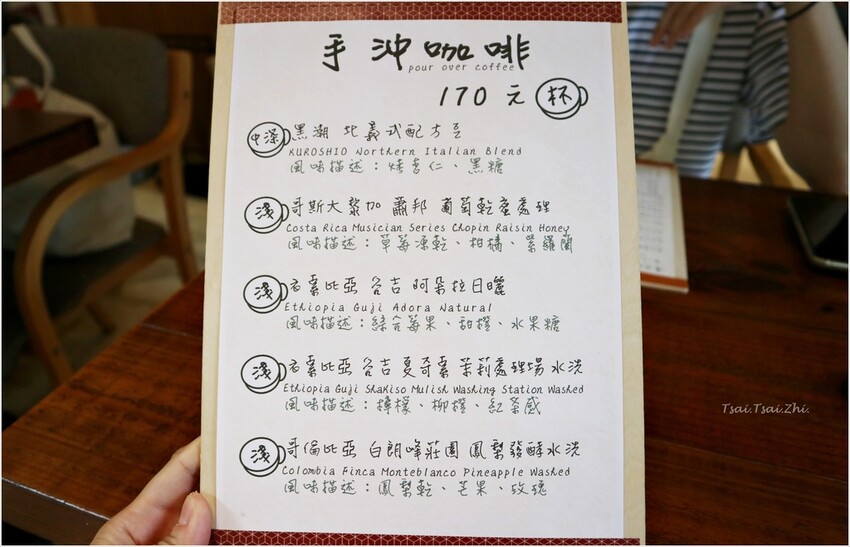 手沖咖啡
pour over coffee
170元 杯
中深 黑潮 北義式配方豆
KUROSHIO Northern Italian Blend
風味描述：烤杏仁、黑糖
淺 哥斯大黎加 蕭邦 葡萄乾蜜處理
Costa Rica Musician Series Chopin Raisin Honey
風味描述：草莓凍乾、柑橘、紫羅蘭
淺 衣索比亞 谷吉 阿朵拉日曬
Ethiopia Guji Adora Natural
風味描述：綜合莓果、甜橙、水果糖
淺 衣索比亞 谷吉 夏奇索 茉莉處理場 水洗
Ethiopia Guji Shakiso Mulish Washing Station Washed
風味描述：檸檬、柳橙、紅茶感
淺 哥倫比亞 白朗峰莊園 鳳梨發酵水洗
Colombia Finca Monteblanco Pineapple Washed
風味描述：鳳梨乾、芒果、玫瑰
Tsai.Tsai.Zhi.